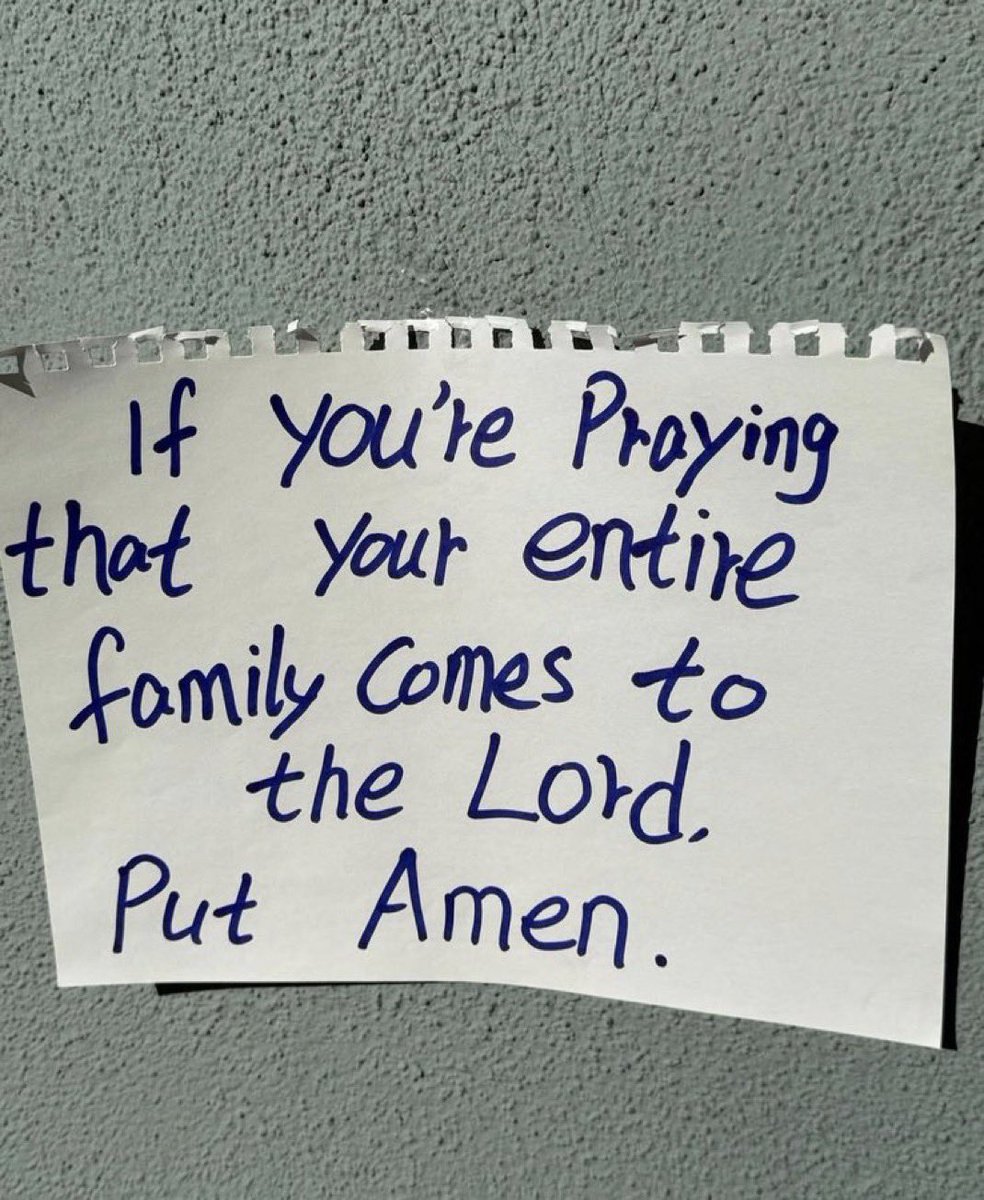 If you're Praying
that your entire
family Comes to
the Lord.
Put Amen.